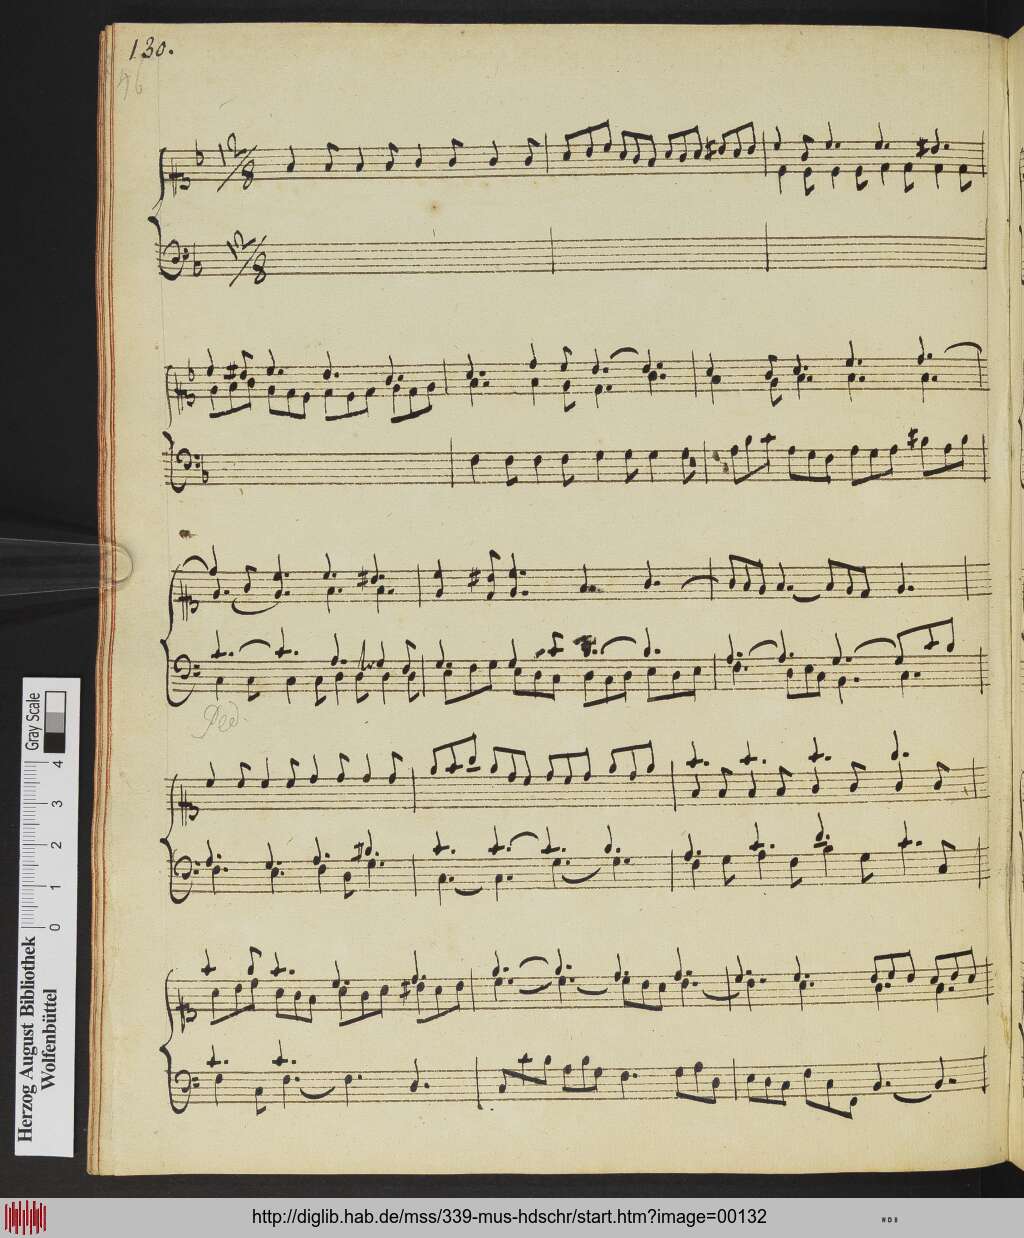 130.
76
12/8
12/8
Ped.
Gray Scale
0 1 2 3 4
Herzog August Bibliothek
Wolfenbüttel
http://diglib.hab.de/mss/339-mus-hdschr/start.htm?image=00132